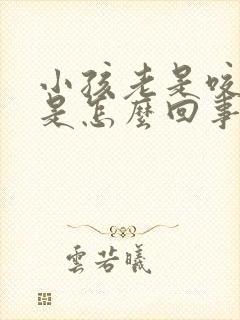 小孩老是咬
是怎麼回事
雲若曦